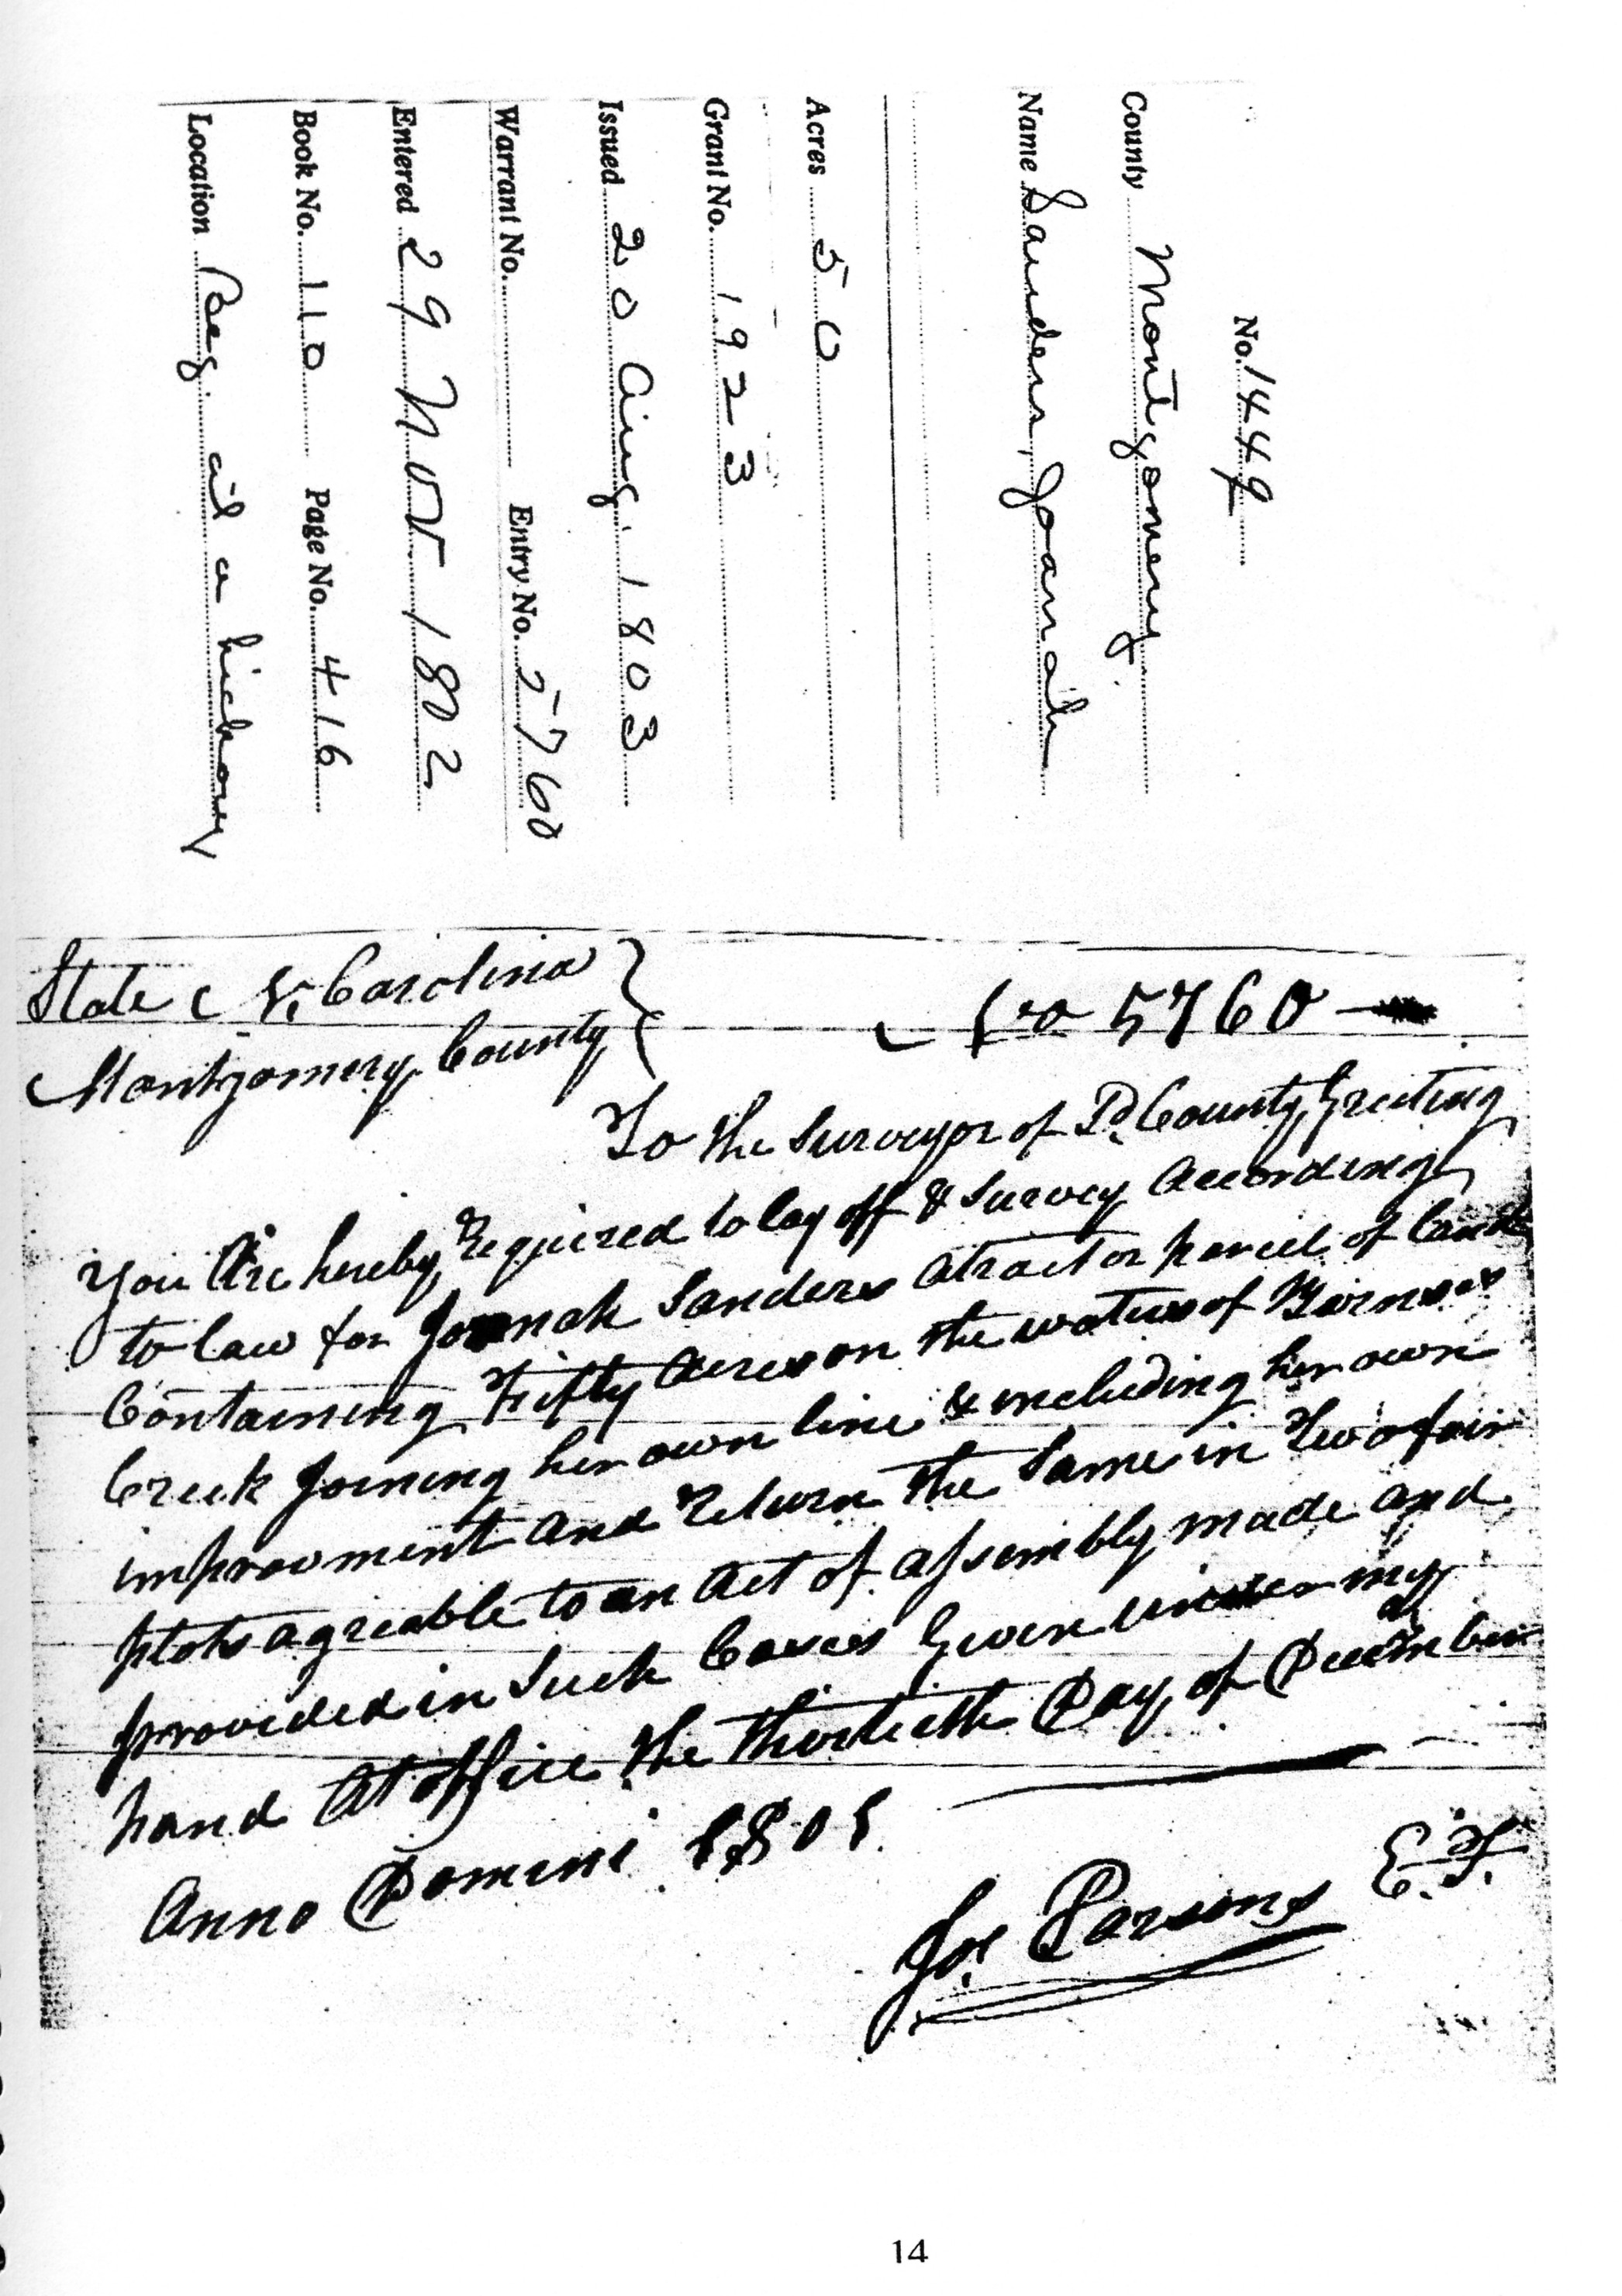 No. 1449
County Montgomery
Name Sanders, Joanah
Acres 50
Grant No. 1923
Issued 20 Aug. 1803
Warrant No. Entry No. 5760
Entered 29 Nov 1802
Book No. 110 Page No. 416
Location Beg. at a hickory
State N. Carolina
No 5760
Montgomery County
To the Surveyor of Sd. County Greeting
You Are hereby Required to lay off & Survey According
to law for Jonnah Sanders A tract or parcel of land
Containing Fifty Acres on the waters of
Creek Joining her own line & including her own
improvment and Return the Same in Two fair
plots agreable to an Act of assembly made and
provided in Such Cases Given under my
hand At office the thirtieth Day of December
Anno Domini 1801
Jos Parsons E.T.
14